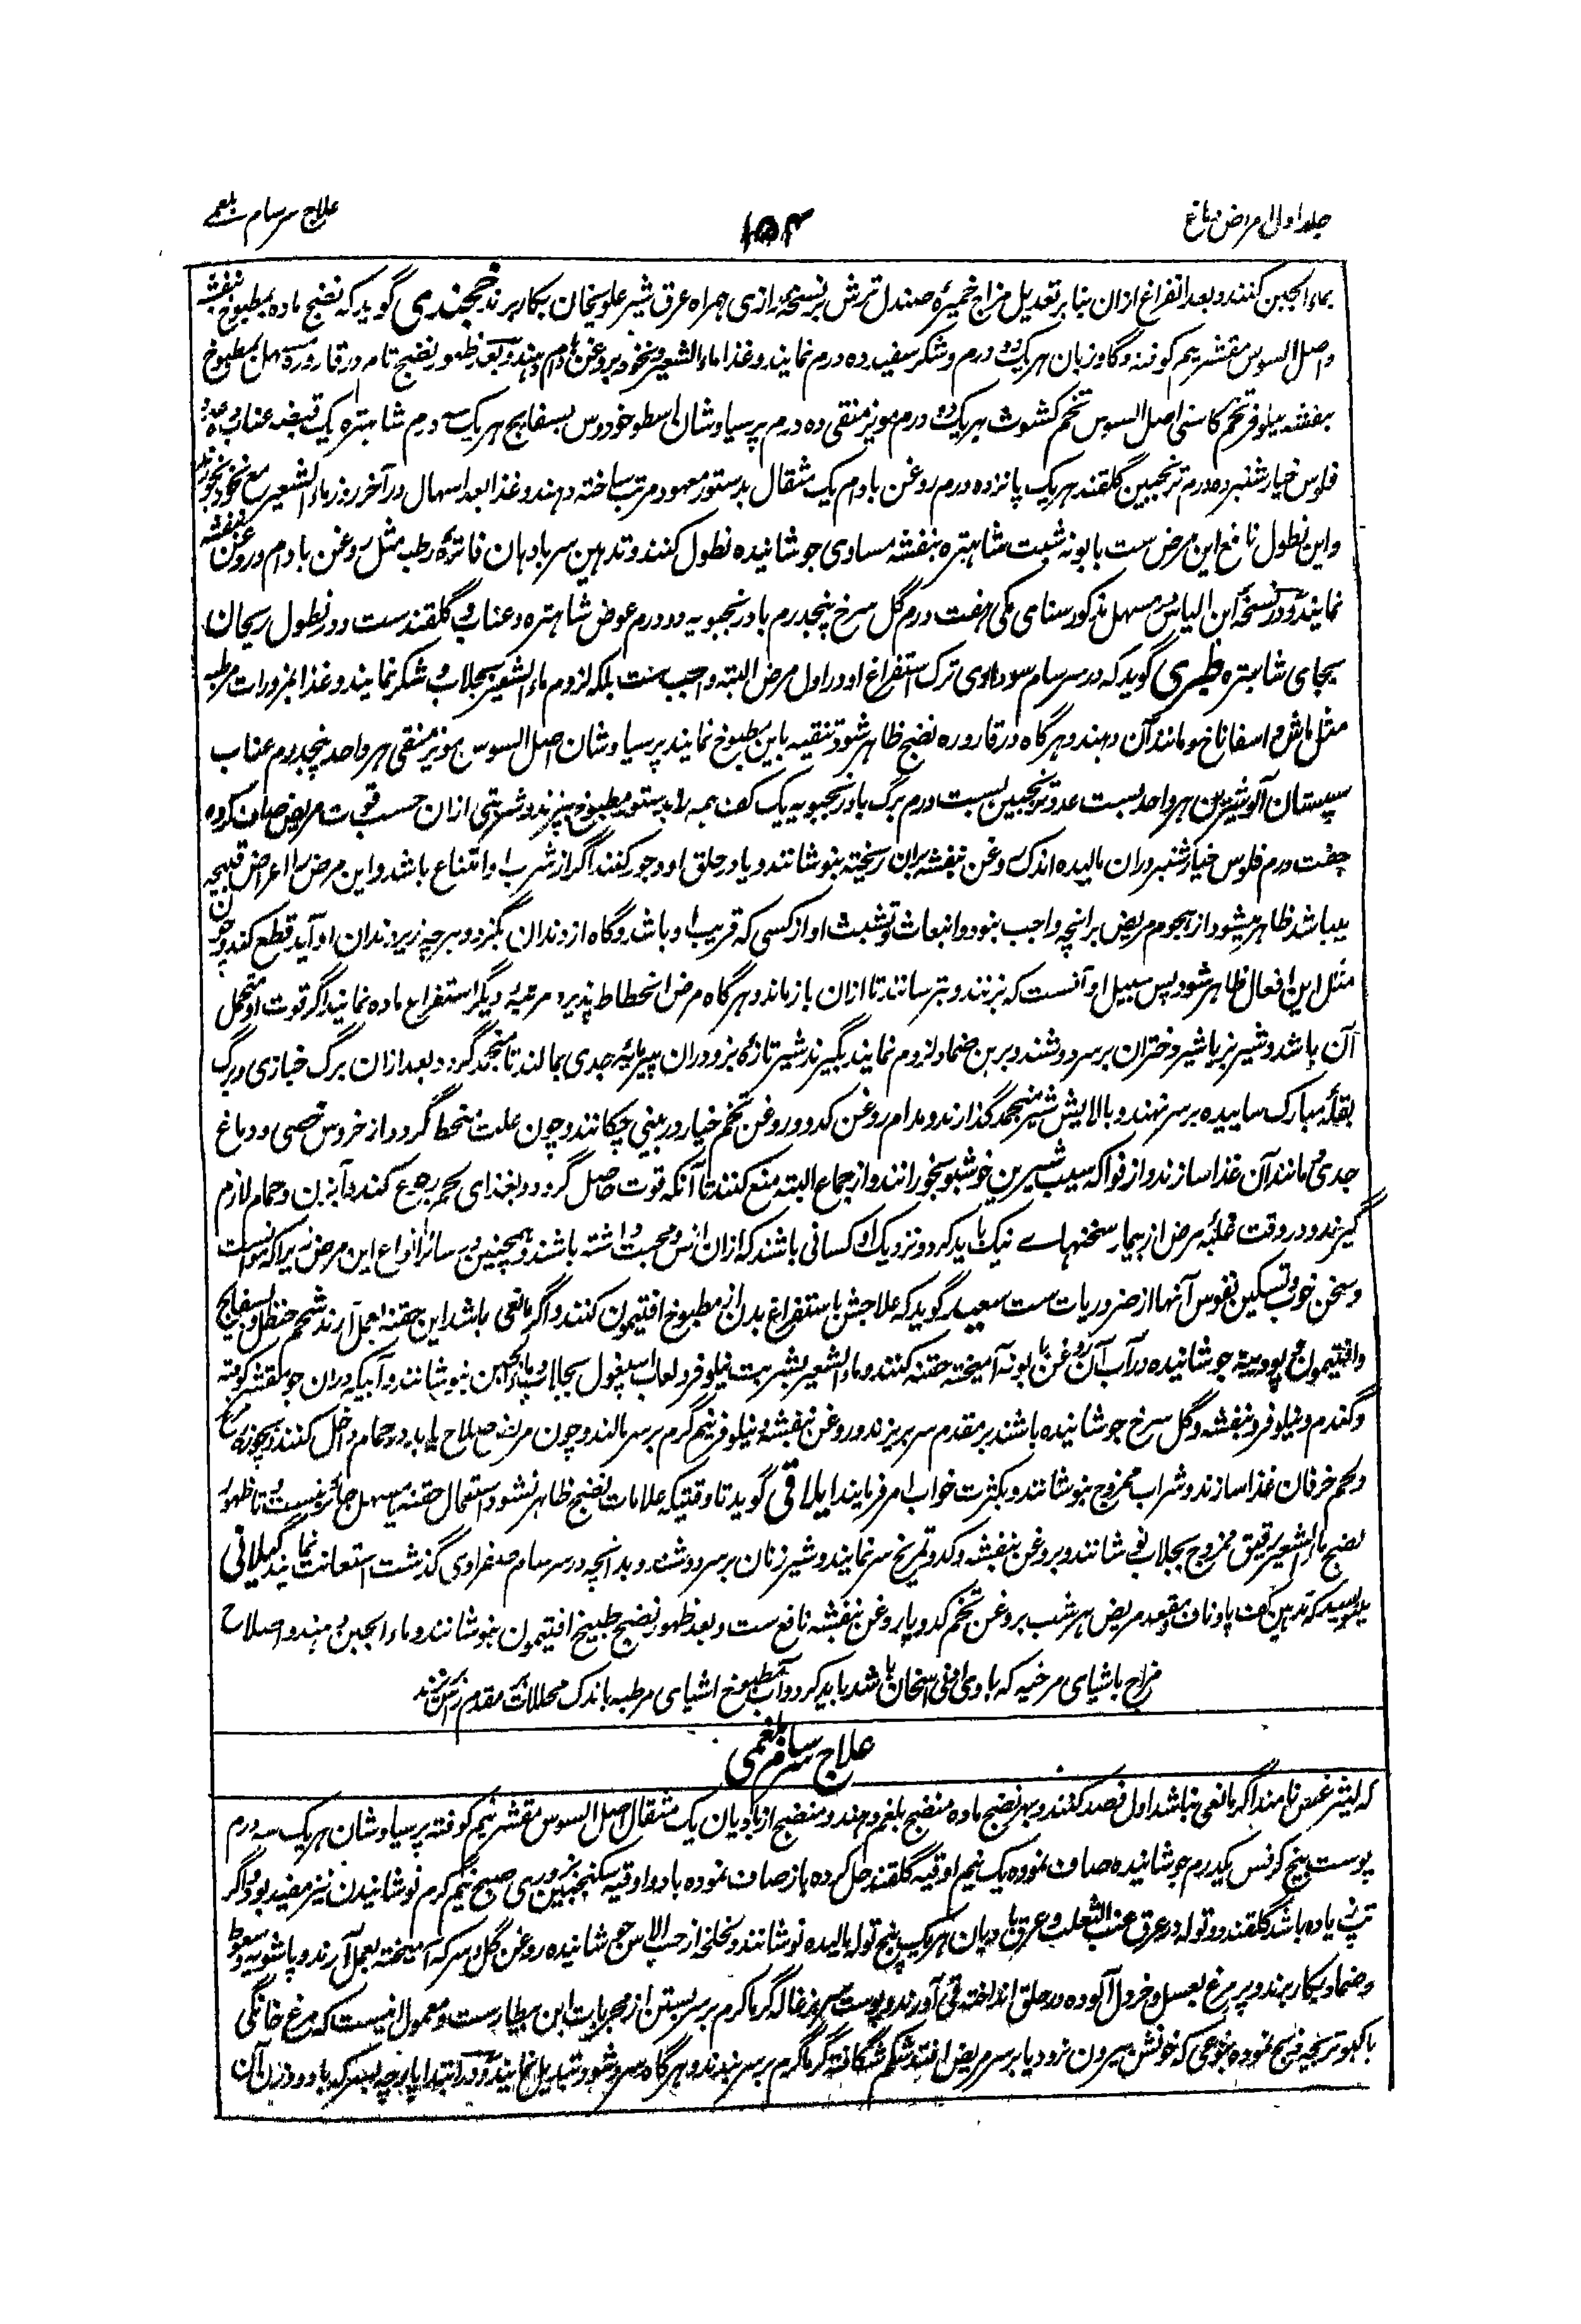 جلد اول امراض دماغ
۱۵۴
علاج سرسام بلغمے
بماء الجبن کنند و بعد انفراغ ازان بنابر تعدیل مزاج خمیرۂ صندل ترش بر نسخۂ رازی همراه عرق شیر علویخان بکار برند خجندی گوید که نضج ماده بمطبوخ بنفشه
و اصل السوس مقشر نیم کوفته و گاوزبان هر یک دو درم و شکر سفید ده درم نمایند و غذا ماء الشعیر و نخود بروغن بادام دهند و بعد ظهور نضج تام در قاروره مسهل بمطبوخ
بنفشه نیلوفر تخم کاسنی اصل السوس تخم کشوث هر یک دو درم مویز منقی ده درم پرسیاوشان اسطوخودوس بسفایج هر یک سه درم شاهتره یک قبضه عناب ده عدد
فلوس خیارشنبر ده درم ترنجبین گلقند هر یک پانزده درم روغن بادام یک مثقال بدستور معهود مرتب ساخته دهند و غذا بعد اسهال در آخر روز ماء الشعیر مع نخود
و این نطول نافع این مرض ست بابونه شبت شاهتره بنفشه مساوی جوشانیده نطول کنند و تدهین سر بادهان فاترۂ رطب مثل روغن بادام و روغن بنفشه
نمایند و در نسخۂ ابن الیاس مسهل مذکور سنای مکی هفت درم گل سرخ پنجدرم بادرنجبویه دو درم عوض شاهتره و عناب و گلقند ست و در نطول ریحان
بجای شاهتره طبری گوید که در سرسام سوداوی ترک استفراغ او در اول مرض البته واجب ست بلکه لزوم ماء الشعیر بجلاب و شکر نمایند و غذا بمزورات مرطبه
مثل ماش و اسفاناخ و مانند آن دهند و هر گاه در قاروره نضج ظاهر شود تنقیه باین مطبوخ نمایند پرسیاوشان اصل السوس مویز منقی هر واحد پنجدرم عناب
سپستان آلو شیرین هر واحد بست عدد ترنجبین بست درم برگ بادرنجبویه یک کف همه را بدستور مطبوخ بپزند و شربتی ازان حسب قوت مریض صاف کرده
هفت درم فلوس خیارشنبر دران مالیده اندک روغن بنفشه بران ریخته بنوشانند و یا در حلق او وجور کنند اگر از شرب او امتناع باشد و این مرض را اعراض قبیحه
میباشد ظاهر میشود از هجوم مریض بر آنچه واجب نبود و انبعاث و تشبث او از کسی که قریب او باشد و گاه از دندان بگزد و هر چیز زیر دندان او آید قطع کند و چون
مثل این افعال ظاهر شود پس سبیل او آنست که بزنند و بترسانند تا ازان باز ماند و هر گاه مرض انحطاط پذیرد مرتبۂ دیگر استفراغ ماده نمایند اگر قوت او متحمل
آن باشد و شیر بز یا شیر دختران بر سر دوشند و برین ضماد لزوم نمایند بگیرند شیر تازۂ بز و دران پنیرمایۂ جدی بمالند تا منجمد گردد و بعد ازان برگ خبازی و برگ
بقلۂ مبارک ساییده بر سر نهند و بالایش شیر منجمد گذارند و مدام روغن کدو و روغن تخم خیار در بینی چکانند و چون علت منحط گردد از خروس خصی و دماغ
جدی و مانند آن غذا سازند و از فواکه سیب شیرین خوشبو بخورانند و از جماع البته منع کنند تا آنکه قوت حاصل گردد و بغذای لحمیه رجوع کنند و آبزن و حمام لازم
گیرند و در وقت غلبۂ مرض از بیمار سخنهاے نیک باید کرد و نزدیک او کسانی باشند که ازان انس و محبت داشته باشند و همچنین در سائر انواع این مرض زیرا که موانست
و سخن خوب و تسکین نفوس آنها از ضروریات ست سعید گوید که علاجش باستفراغ بدن از مطبوخ افتیمون کنند و اگر مانعی باشد این حقنه بعمل آرند شحم حنظل و بسفایج
و افتیمون و پودینه جوشانیده در آب آن روغن بابونه آمیخته حقنه کنند و ماء الشعیر بشربت نیلوفر و لعاب اسپغول بجلاب و ماء الجبن بنوشانند و آبیکه دران جو مقشر کوفته
و گندم و نیلوفر و بنفشه و گل سرخ جوشانیده باشند بر مقدم سر بریزند و روغن بنفشه و نیلوفر نیم گرم بر سر مالند و چون مریض صلاح یابد در حمام داخل کنند و بچوزه مرغ
و لحم خرفان غذا سازند و شراب ممزوج بنوشانند و بکثرت خواب امر فرمایند ایلاقی گوید تا وقتیکه علامات نضج ظاهر نشود استعمال حقنه و مسهل جائز نیست و تا ظهور
نضج ماء الشعیر رقیق ممزوج بجلاب نوشانند و بروغن بنفشه و کدو تمریخ سر نمایند و شیر زنان بر سر دوشند و بدانچه در سرسام صفراوی گذشت استعانت نمایند گیلانی
میگوید که تدهین کف پا و ناف و مقعد مریض هر شب بروغن تخم کدو یا روغن بنفشه نافع ست و بعد ظهور نضج طبیخ افتیمون بنوشانند و ماء الجبن دهند و اصلاح
مزاج باشیای مرخیه که با وی ادنی اسخان باشد باید کرد و آب مطبوخ اشیای مرطبه باندک محللات بر مقدم سر ریزند
علاج سرسام بلغمی
که لیثرغس نامند اگر مانعی نباشد اول فصد کنند و بهر نضج ماده منضج بلغم دهند و منضج از بادیان یک مثقال اصل السوس مقشر نیم کوفته پرسیاوشان هر یک سه درم
پوست بیخ کرفس یکدرم جوشانیده صاف نموده یک نیم اوقیه گلقند حل کرده باز صاف نموده با دو اوقیه سکنجبین بزوری صبح نیم گرم نوشانیدن نیز مفید بود و اگر
تپ زیاده باشد گلقند دو توله در عرق عنب الثعلب و عرق بادیان هر یک پنج توله مالیده نوشانند و لخلخه از حب الاس جوشانیده روغن گل و سرکه آمیخته بعمل آرند و پاشویه و سعوط
و ضماد بکار برند و پر مرغ بعسل و خردل آلوده در حلق انداخته قی آورند و پوست سر بزغاله گرماگرم بر سر بستن از مجربات ابن بیطار ست و معمول انیست که مرغ خانگی
یا کبوتر بچه ذبح نموده بنوعی که خونش بیرون نرود یا بر سر مریض افتد شکم شگافته گرماگرم بر سر بندند و هر گاه سرد شود تبدیل نمایند و در ابتدا پارچه بسرکه